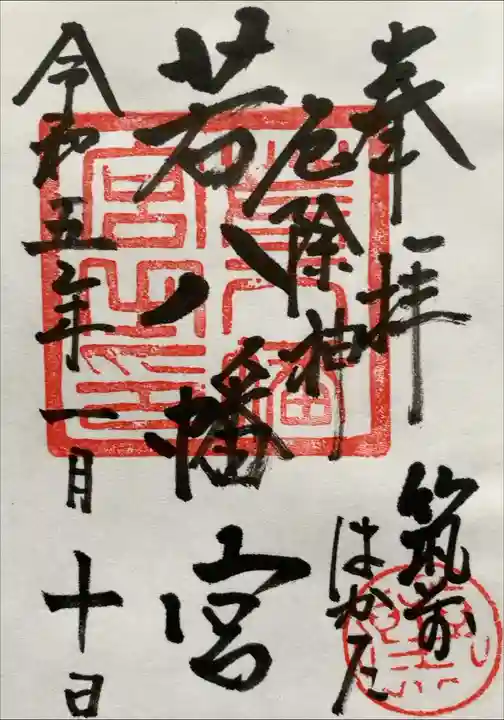 奉拝
筑前
はかた
厄除神
若八幡宮
令和五年一月十日